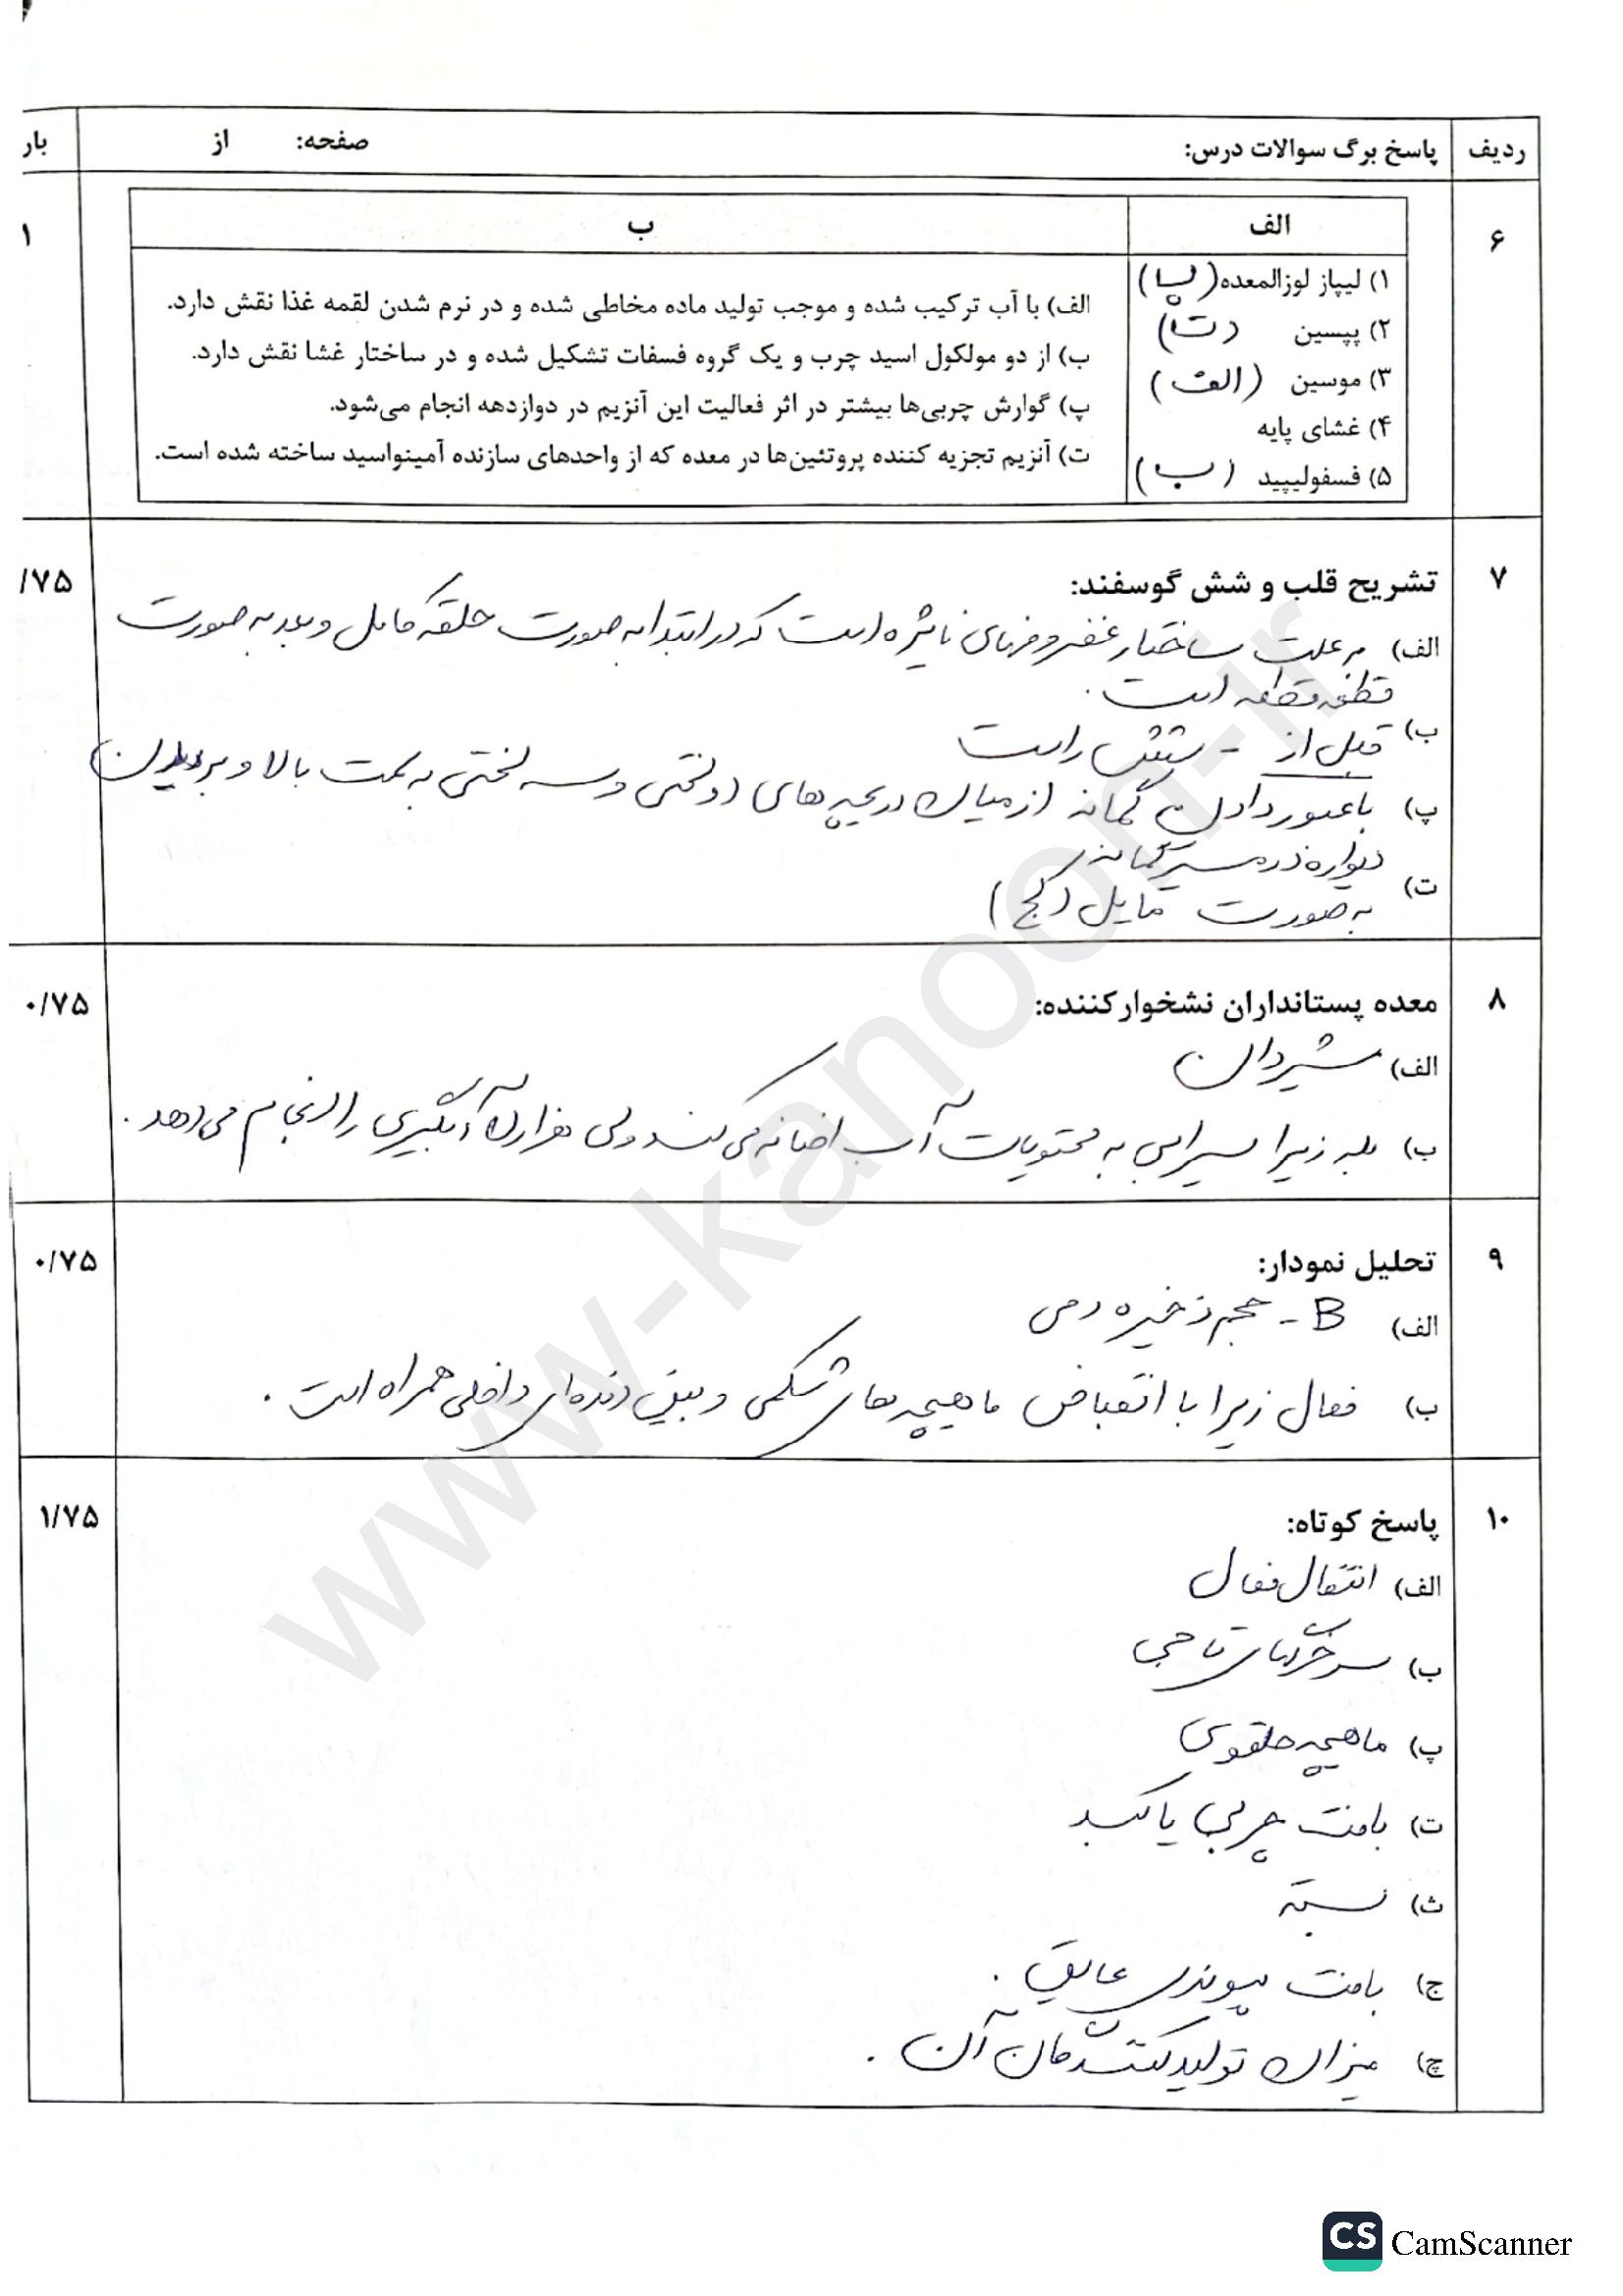 ردیف پاسخ برگ سوالات درس: صفحه: از بار
۶ الف ب ۱
۱) لیپاز لوزالمعده (پ)
۲) پپسین (ت)
۳) موسین (الف)
۴) غشای پایه
۵) فسفولیپید (ب)
الف) با آب ترکیب شده و موجب تولید ماده مخاطی شده و در نرم شدن لقمه غذا نقش دارد.
ب) از دو مولکول اسید چرب و یک گروه فسفات تشکیل شده و در ساختار غشا نقش دارد.
پ) گوارش چربی‌ها بیشتر در اثر فعالیت این آنزیم در دوازدهه انجام می‌شود.
ت) آنزیم تجزیه کننده پروتئین‌ها در معده که از واحدهای سازنده آمینواسید ساخته شده است.
۷ تشریح قلب و شش گوسفند: /۷۵
الف) به علت ساختار غضروفهای نایژه است که در ابتدا به صورت حلقه کامل و بعد به صورت
قطعه قطعه است.
ب) قبل از - شش راست
پ) با عبور دادن گمانه از میان دریچه های دولختی و سه لختی به سمت بالا و بریدن
دیواره در مسیر گمانه
ت) به صورت مایل (کج)
۸ معده پستانداران نشخوارکننده: ۰/۷۵
الف) شیردان
ب) بله زیرا سیرابی به محتویات آب اضافه می کند ولی هزارلا آبگیری را انجام می دهد.
۹ تحلیل نمودار: ۰/۷۵
الف) B - حجم ذخیره دمی
ب) فعال زیرا با انقباض ماهیچه های شکمی و بین دنده ای داخلی همراه است.
۱۰ پاسخ کوتاه: ۱/۷۵
الف) انتقال فعال
ب) سرخرگهای تاجی
پ) ماهیچه حلقوی
ت) بافت چربی یا کبد
ث) بسته
ج) بافت پیوندی عایق.
چ) میزان تولیدکنندگان آن.
www-kanoon-ir
CS CamScanner